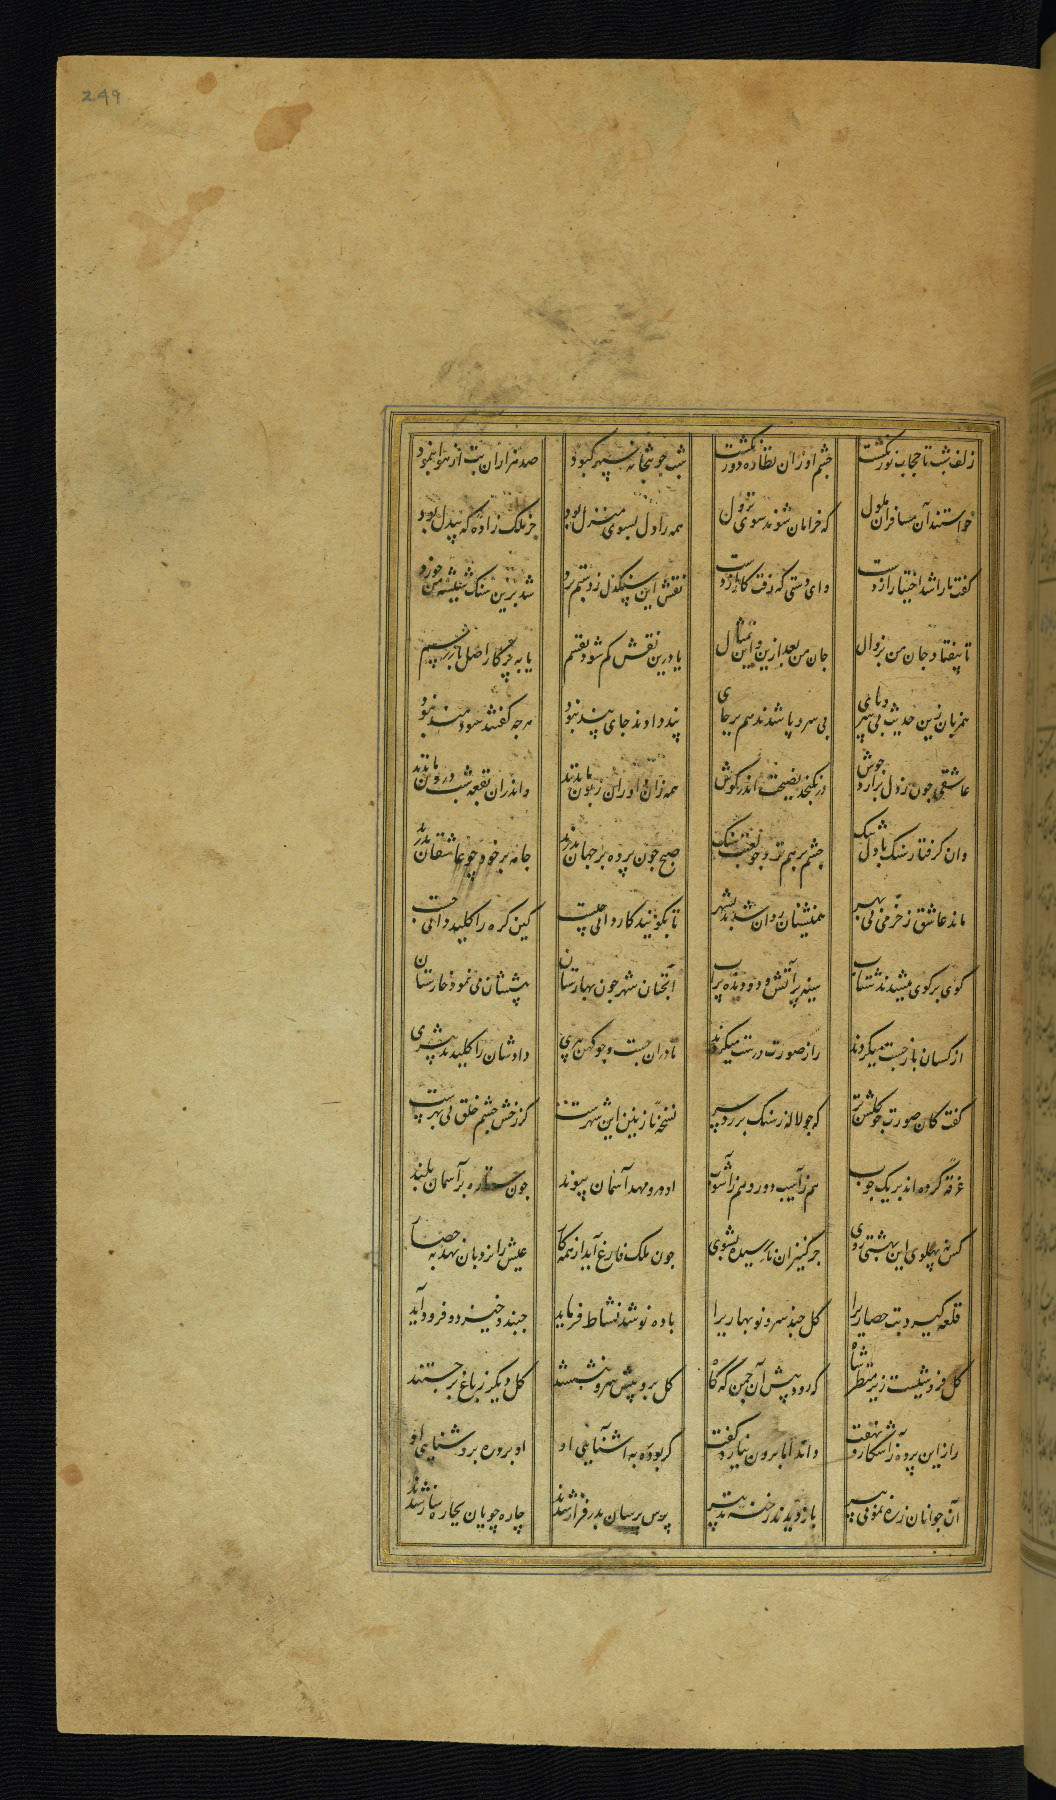 249
زلف شب تا حجاب نور نکشت چشم او زان نظاره دور نکشت شب چو بتخانه سپهر کبود صد هزاران بت از هوا بنمود
خواستند آن مسافران ملول که خرامان شوند سوی نزول همه را دل بسوی منزل بود جز ملک زاده که بیدل بود
کفت ما را شد اختیار از دست وای دستی که رفت کار از دست نقش این سنکدل ز دستم برد شد برین سنک شیشه من خورد
تا نیفتد و جان من بزوال جان من بعد ازین و این تمثال یا درین نقش کم شود نقسم یا به پرکار اصل باز رسیم
همزبان زین حدیث بی سر و پای بی سر و پا شدند هم بر جای پند دادند جای پند نبود هر چه کفتند سودمند نبود
عاشقی چون ز دل برآرد جوش در نکنجد نصیحت اندر کوش همه زان داوری زبون ماندند واندران بقعه شب درون ماندند
وان کرفتار سنک با دل تنک چشم بر هم نزد چو لعبت سنک صبح چون پرده بر جهان بدرید جامه بر خود چو عاشقان بدرید
ماند عاشق ز خرمی بی بهر همنشینان روان شدند بشهر تا بکویند کار دانی چیست کین کره را کلید دانی چیست
کوی بر کوی میشدند شتاب سینه پر آتش و دو دیده پر آب آنچنان شهر چون بهارستان پیششان می نمود خارستان
از کسان باز جست میکردند راز صورت درست میکردند تا دران جست و جو کهن پیری دادشان را کلید تدبیری
کفت کان صورت چو کلشن تر که چو لاله ز سنک بر زد سر نسخه نازنین این شهرست کز رخش چشم خلق بی بهرست
غرفه کرده اند بر یک چوب هم ز آسیب دور و هم ز آشوب او در و مهد آسمان پیوند چون ستاره بر آسمان بلند
کس نه پهلوی این بهشتی روی جز کنیزان نارسیده بشوی چون ملک فارغ آید از همه کار عیش را نردبان نهد به حصار
قلعه کیرد بت حصاری را کل چند سرو نوبهاری را باده نوشد نشاط فرماید جنبد و خیزد و فرود آید
کل فرو شیست زیر منظر شاه که رود پیش آن چمن که کاه کل برد پیش سرو بنشیند کل دیکر ز باغ برچیند
راز این پرده ز آشکار و نهفت داند اما برون نیارد کفت کر بود ره به آشنایی او او برد ره بروشنایی او
آن جوانان ز رهنمونی پیر باز دیدند رخنه تدبیر پرس پرسان بدر فراز شدند چاره جویان بچاره ساز شدند